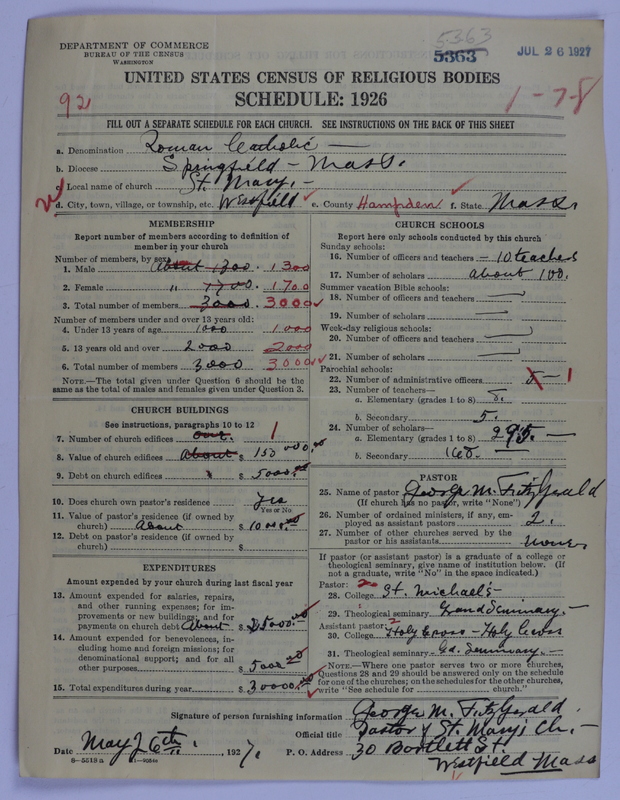 5363
DEPARTMENT OF COMMERCE
BUREAU OF THE CENSUS
WASHINGTON
5363
JUL 26 1927
UNITED STATES CENSUS OF RELIGIOUS BODIES
SCHEDULE: 1926
92
1-7-8
FILL OUT A SEPARATE SCHEDULE FOR EACH CHURCH. SEE INSTRUCTIONS ON THE BACK OF THIS SHEET
a. Denomination Roman Catholic —
b. Diocese Springfield - Mass.
c. Local name of church St. Mary. -
d. City, town, village, or township, etc. Westfield e. County Hampden f. State Mass.
MEMBERSHIP
Report number of members according to definition of
member in your church
Number of members, by sex:
1. Male About 1300 . 1300
2. Female " 1700 . 1700
3. Total number of members 3000 . 3000
Number of members under and over 13 years old:
4. Under 13 years of age 1000 1000
5. 13 years old and over 2000 2000
6. Total number of members 3000 3000
NOTE.—The total given under Question 6 should be the
same as the total of males and females given under Question 3.
CHURCH BUILDINGS
See instructions, paragraphs 10 to 12
7. Number of church edifices one. 1
8. Value of church edifices About $ 150000.00
9. Debt on church edifices $ 5000.00
10. Does church own pastor's residence Yes
Yes or No
11. Value of pastor's residence (if owned by
church) About $ 10000.00
12. Debt on pastor's residence (if owned by
church) $
EXPENDITURES
Amount expended by your church during last fiscal year
13. Amount expended for salaries, repairs,
and other running expenses; for im-
provements or new buildings; and for
payments on church debt About $ 25000.00
14. Amount expended for benevolences, in-
cluding home and foreign missions; for
denominational support; and for all
other purposes $ 5000.00
15. Total expenditures during year $ 30000.00
CHURCH SCHOOLS
Report here only schools conducted by this church
Sunday schools:
16. Number of officers and teachers - 10 teachers
17. Number of scholars about 100.
Summer vacation Bible schools:
18. Number of officers and teachers —
19. Number of scholars —
Week-day religious schools:
20. Number of officers and teachers —
21. Number of scholars —
Parochial schools:
22. Number of administrative officers - 1
23. Number of teachers—
a. Elementary (grades 1 to 8) 8.
b. Secondary 5.
24. Number of scholars—
a. Elementary (grades 1 to 8) 295. —
b. Secondary 160 —
PASTOR
25. Name of pastor George M. FitzGerald
(If church has no pastor, write "None")
26. Number of ordained ministers, if any, em-
ployed as assistant pastors 2.
27. Number of other churches served by the
pastor or his assistants none.
If pastor (or assistant pastor) is a graduate of a college or
theological seminary, give name of institution below. (If
not a graduate, write "No" in the space indicated.)
Pastor: 2
28. College St. Michael's -
29. Theological seminary Grand Seminary. -
Assistant pastor: 2
30. College Holy Cross - Holy Cross
31. Theological seminary Gd. Seminary. -
NOTE.—Where one pastor serves two or more churches,
Questions 28 and 29 should be answered only on the schedule
for one of the churches; on the schedules for the other churches,
write "See schedule for church."
Signature of person furnishing information George M. FitzGerald
Official title Pastor of St. Mary's Ch. -
Date May 26th, 1927. P. O. Address 30 Bartlett St.
8-5519 a
Westfield Mass